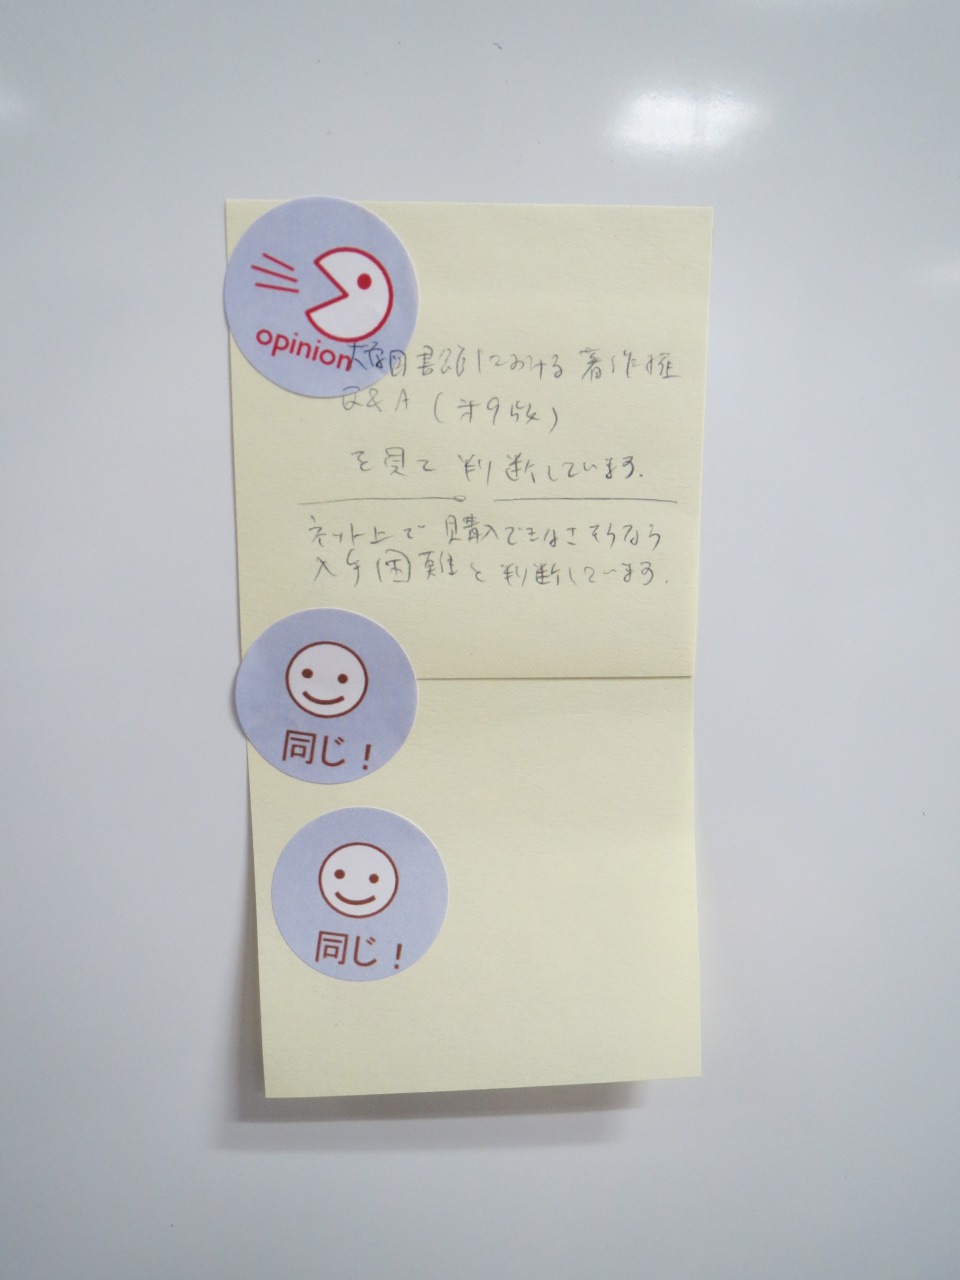 opinion
大学図書館における著作権
Q&A (第9版)
を見て判断しています.
ネット上で購入できなさそうなら
入手困難と判断しています.
同じ!
同じ!